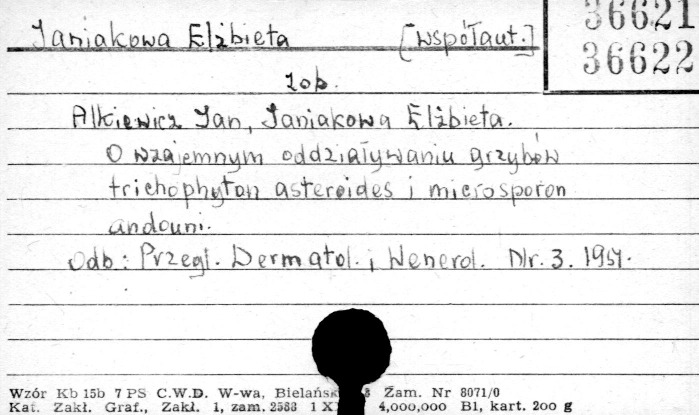 36621
36622
Janiakowa Elżbieta [współaut.]
zob.
Alkiewicz Jan, Janiakowa Elżbieta.
O wzajemnym oddziaływaniu grzybów
trichophyton asteroides i microsporon
andouni.
Odb: Przegl. Dermatol. i Wenerol. Nr. 3. 1951.
Wzór Kb 15b 7 PS C.W.D. W-wa, Zam. Nr 8071/0
Kat. Zakł. Graf., Zakł. 1, zam. 2588 4,000,000 B1, kart. 200 g